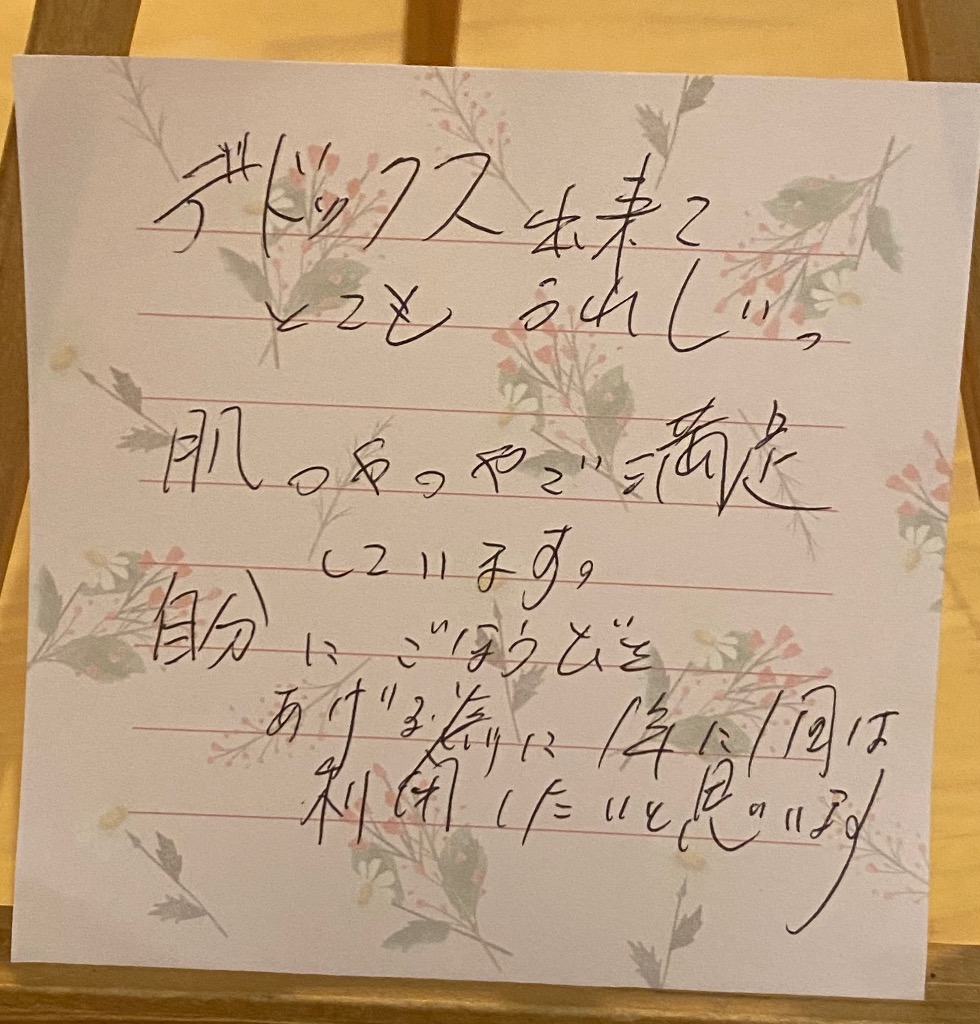 デドックス出来て
とてもうれしい。
肌つやつやで満足
しています。
自分にごほうびを
あげる為に1年に1回は
利用したいと思います